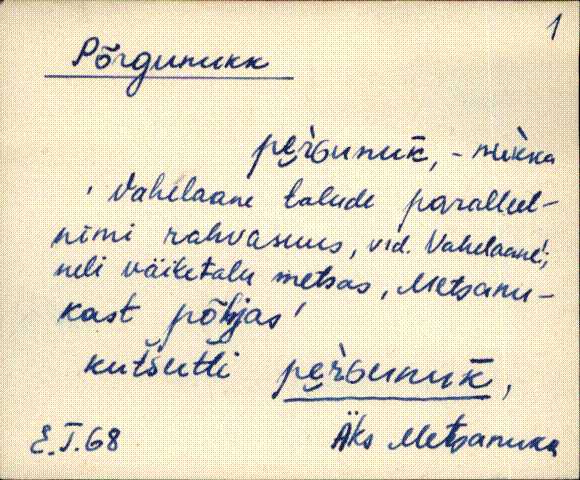 1
Põrgunukk
pe̮rGunuk̄, -nuk̀ka
' Vahelaane talude paralleel-
nimi rahvasuus, vid. Vahelaane;
neli väiketalu metsas, Metsanu-
kast põhjas'
kutšutti pe̮rGunuk̄,
E.T.68 Äks Metsanuka